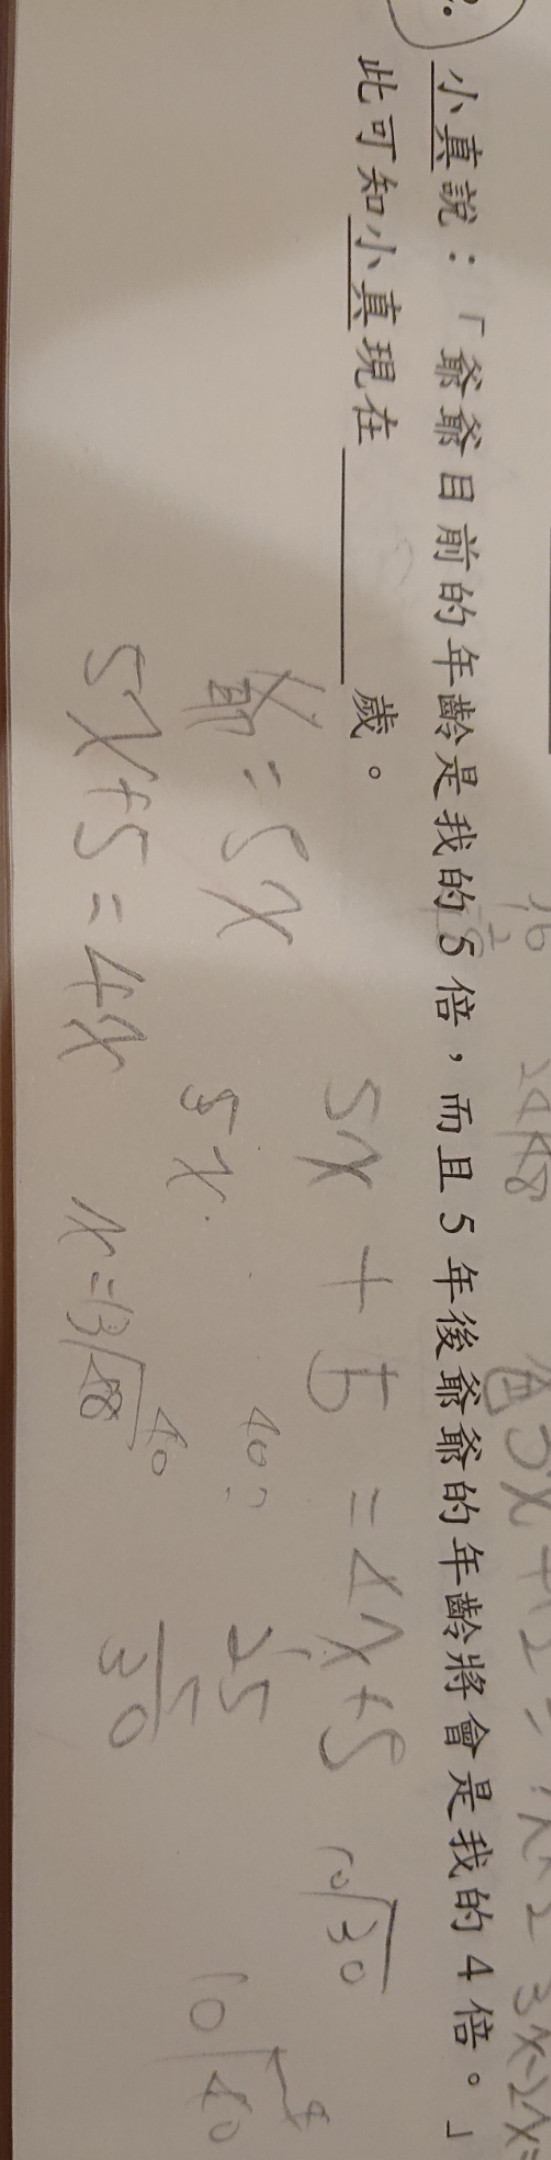 小真說：「爺爺目前的年齡是我的5倍，而且5年後爺爺的年齡將會是我的4倍。」
此可知小真現在＿＿＿＿歲。
5x + 5 = 4x+5
10 30
爺 = 5x
5x
40
25
5
30
10 40
4
5x+5=4x
x=
40